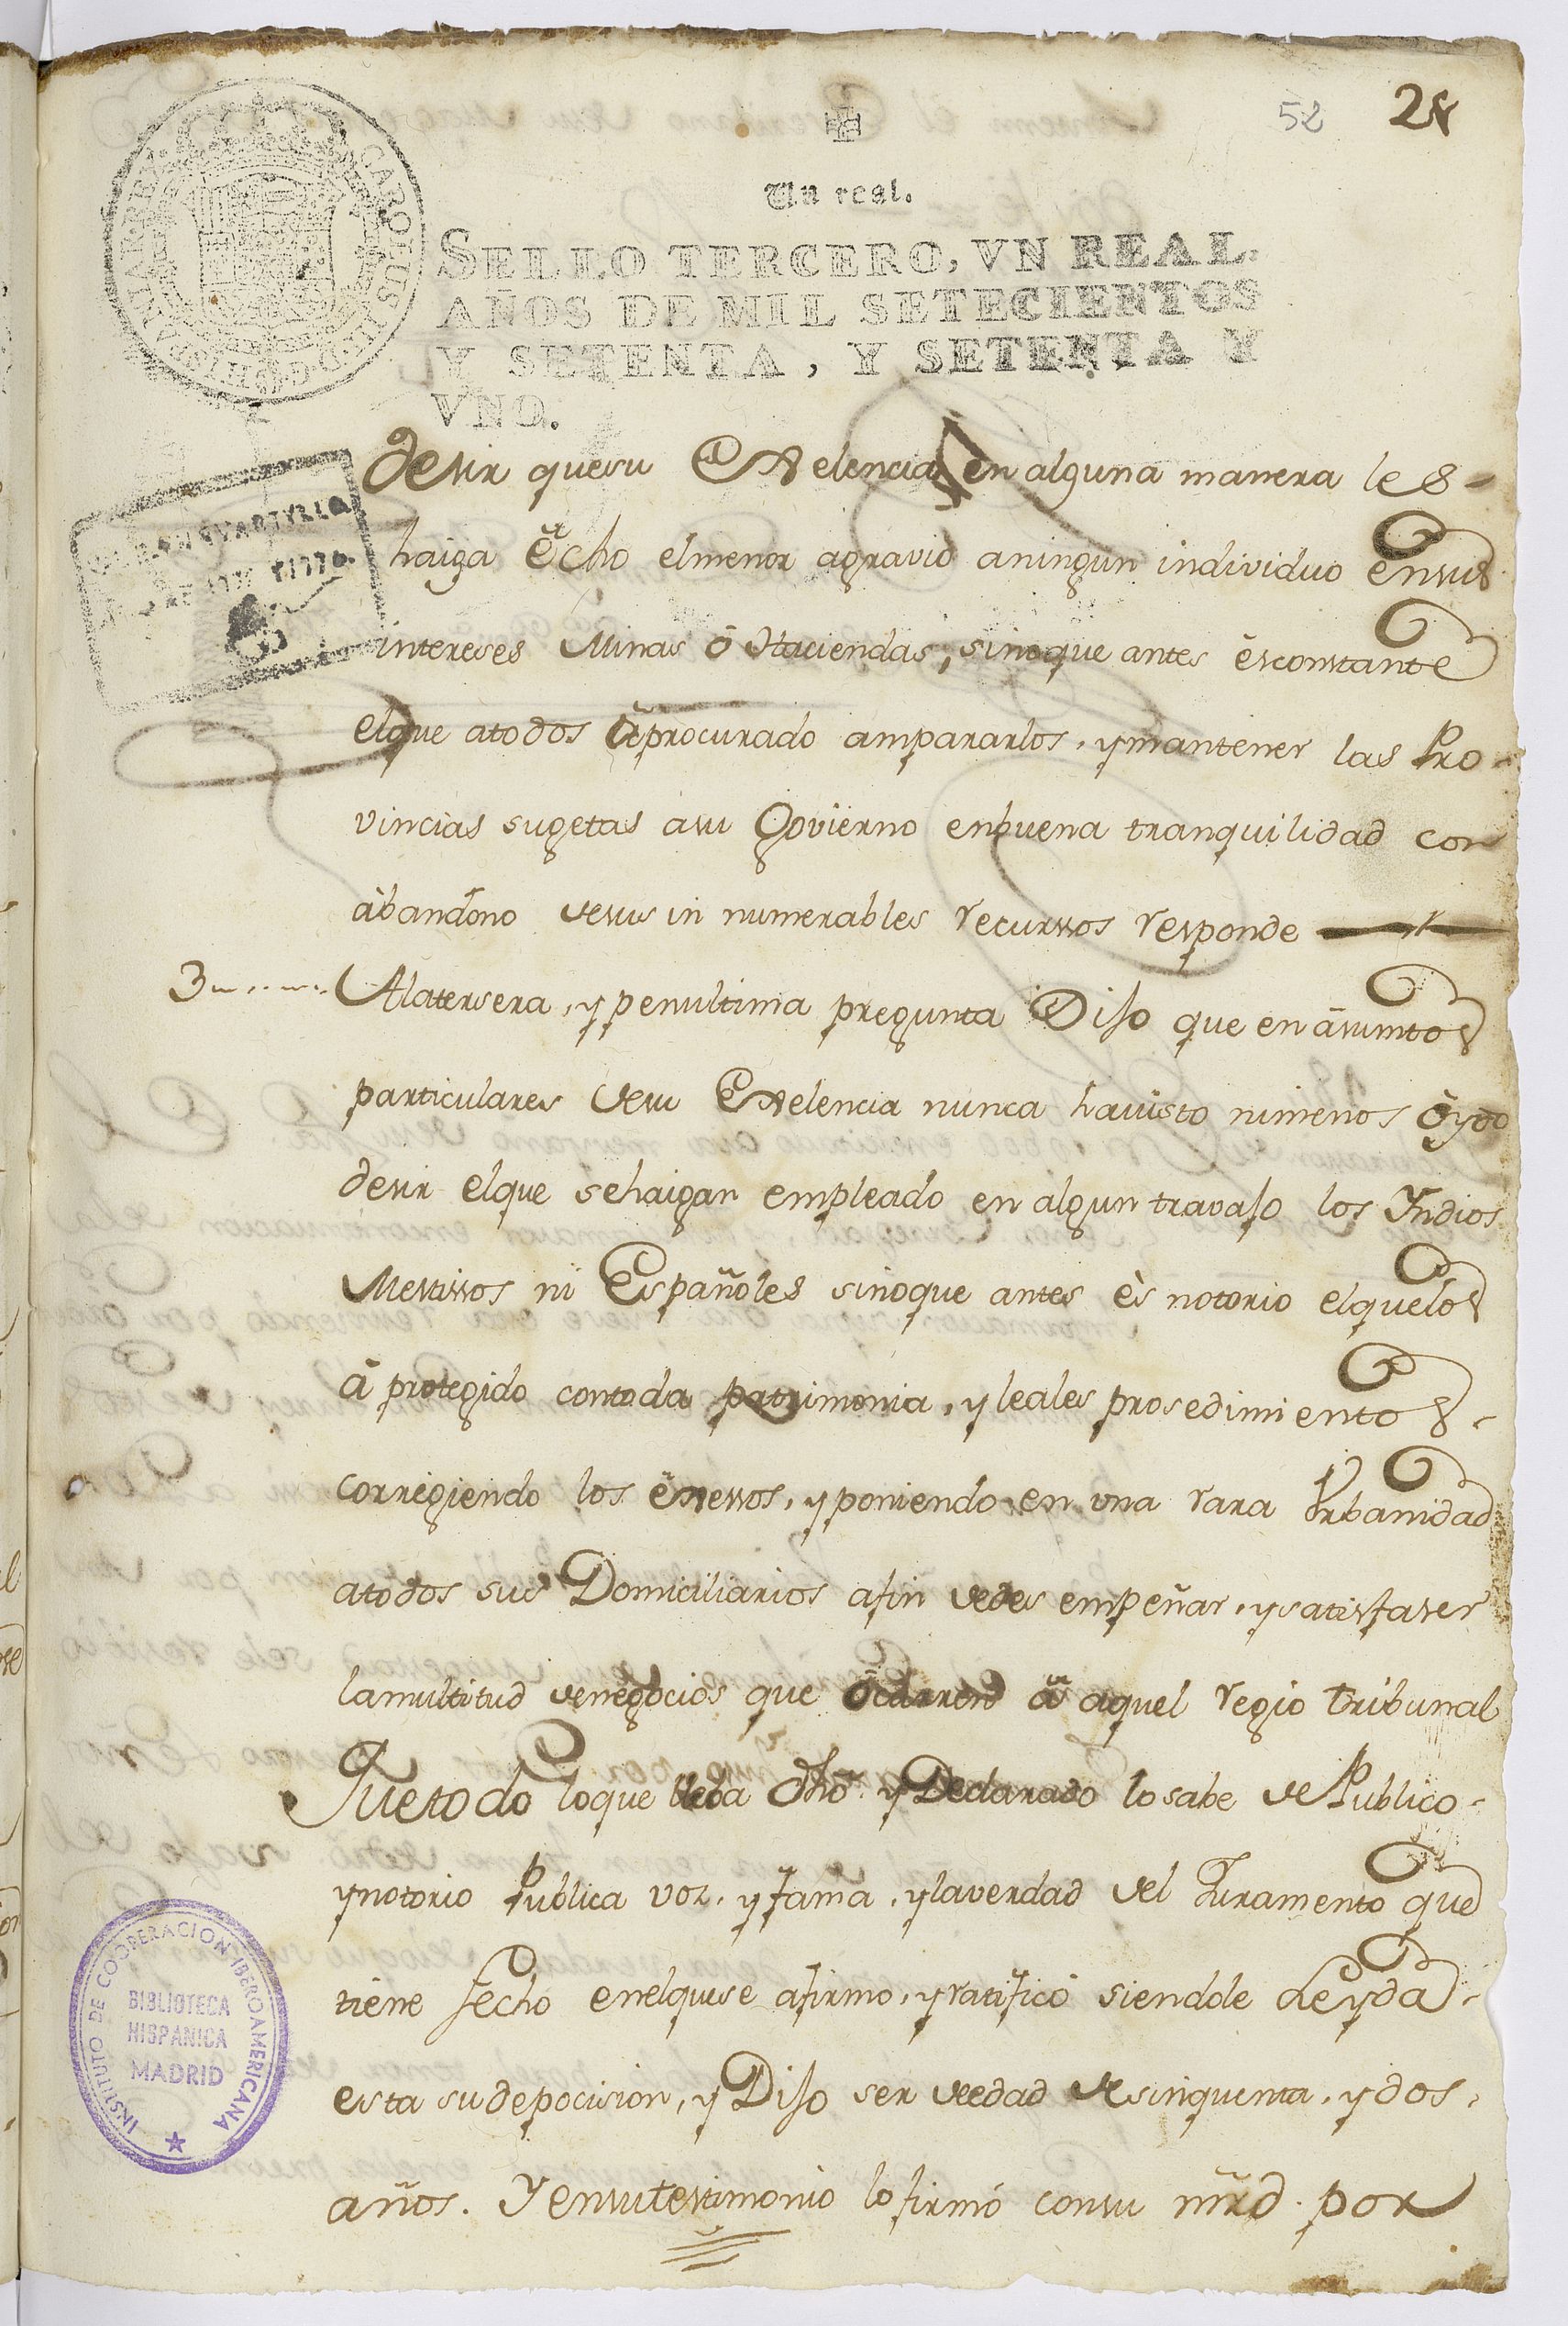 52 28
Un real.
SELLO TERCERO, VN REAL.
AÑOS DE MIL SETECIENTOS
Y SETENTA, Y SETENTA Y
VNO.
desir quesu Exelencia en alguna manera les
haiga echo elmenor agravio aningun individuo ensus
intereses Minas ô Haciendas, sinoque antes èsconstante
elque atodos â procurado ampararlos, y mantener las Pro-
vincias sugetas asu Govierno enbuena tranquilidad con
àbandono desus in numerables recursos responde
3 Alatersera, y penultima pregunta Dijo que en âsumtos
particulares desu Exelencia nunca havisto nimenos ôydo
desir elque sehaigan empleado en algun travajo los Yndios
Mestisos ni Españoles sinoque antes ès notorio elquelos
â protegido contoda patrimonia, y leales prosedimientos
corrigiendo los êxessos, y poniendo en una rara Urbanidad
atodos sus Domiciliarios afin dedes empeñar, ysatisfaser
lamultitud denegocios que ôcurren â aquel regio tribunal
Quetodo loque lleba dho. y Declarado losabe de Publico
ynotorio Publica voz, y fama, ylaverdad del Juramento que
tiene fecho enelquese afirmo, y ratificó siendole Leyda
esta sudepocision, y Dijo ser deedad desinquenta, ydos
años. Y ensutestimonio lo firmó consu mrd. por
INSTITUTO DE COOPERACION IBEROAMERICANA
BIBLIOTECA
HISPANICA
MADRID